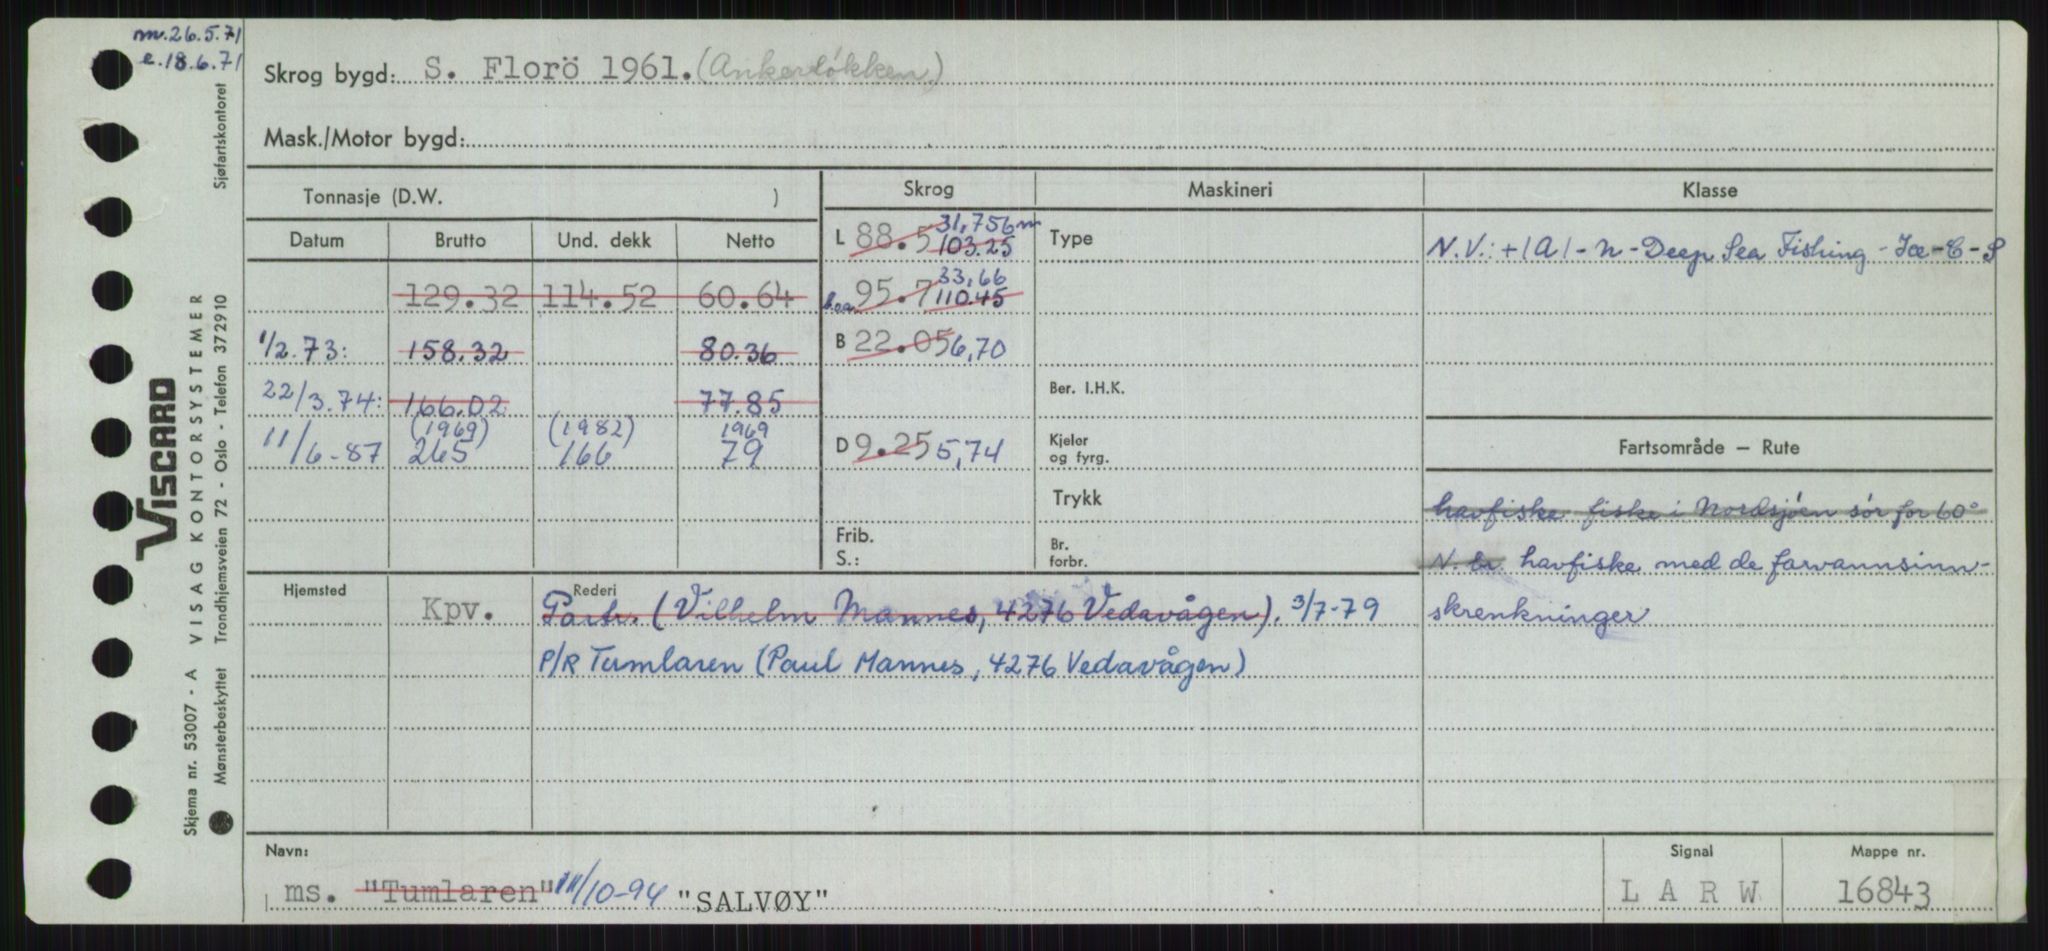 nv. 26.5.71
e. 18.6.71
Skrog bygd: S. Florö 1961. (Ankerløkken)
Mask./Motor bygd:
Tonnasje (D.W. )
Skrog
Maskineri
Klasse
Datum Brutto Und. dekk Netto
L 88.5 103.25 31,756 m
Type
N.V.: +1A1 - N - Deep Sea Fishing - Ice-C - S
129.32 114.52 60.64
b.o.a. 95.7 110.45 33,66
1/2.73: 158.32 80.36
B 22.05 6,70
22/3.74: 166.02 77.85
Ber. I.H.K.
11/6-87 (1969) 265 (1982) 166 1969 79
D 9.25 5,74
Kjeler
og fyrg.
Fartsområde – Rute
Trykk
havfiske fiske i Nordsjøen sør for 60°
Frib.
S.:
Br.
forbr.
N. br. havfiske med de farvannsinn-
skrenkninger
Hjemsted
Rederi
Kpv. Partr. (Vilhelm Mannes, 4276 Vedavågen). 3/7-79
P/R Tumlaren (Paul Mannes, 4276 Vedavågen)
Navn:
Signal
Mappe nr.
ms. "Tumlaren" 11/10-94 "SALVØY"
L A R W
16843
VISCARD
Skjema nr. 53007 - A VISAG KONTORSYSTEMER
Mønsterbeskyttet Trondhjemsveien 72 - Oslo - Telefon 372910 Sjøfartskontoret